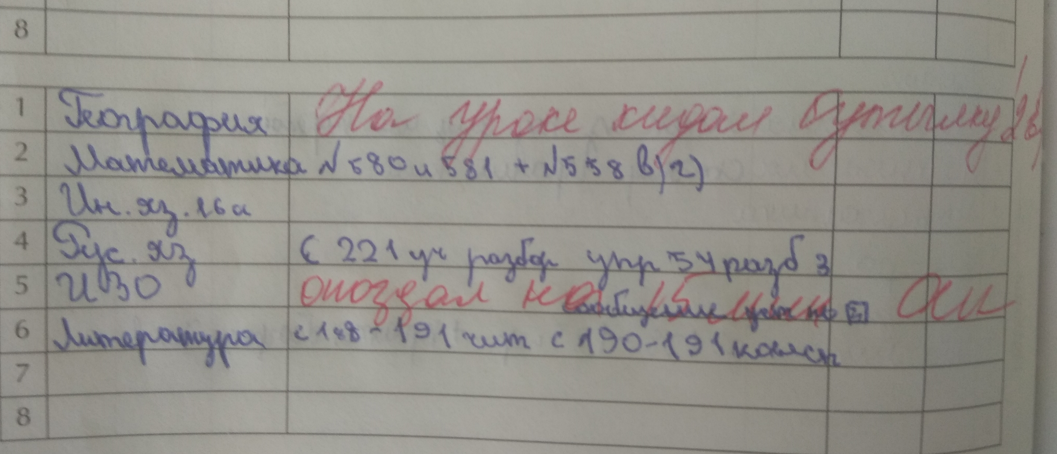 8
1 География На уроке кидал бутылку!
2 Математика №580 и 581 + №558 в) г)
3 Ин. яз. 16а
4 Рус. яз с 221 уч разбор упр 54 разб 3
5 ИЗО опоздал на 15 мин
сообщение
6 Литература с 188-191 чит с 190-191
7
8